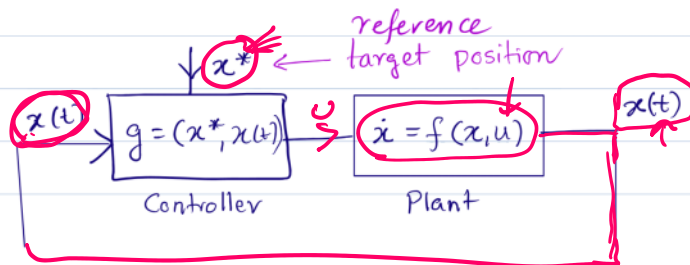 reference
x* target position
x(t) x(t)
g = (x*, x(t)) u ẋ = f(x,u)
Controller Plant